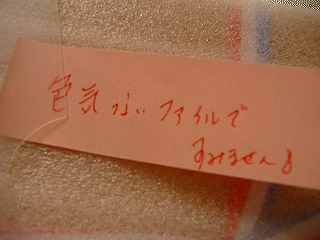 色気ないファイルで
すみません。